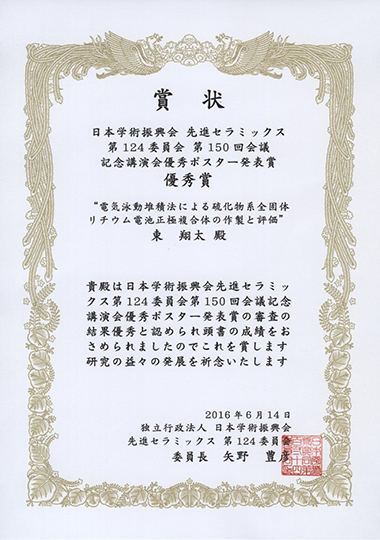 賞状
日本学術振興会 先進セラミックス
第124委員会 第150回会議
記念講演会優秀ポスター発表賞
優秀賞
“電気泳動堆積法による硫化物系全固体
リチウム電池正極複合体の作製と評価”
東 翔太 殿
貴殿は日本学術振興会先進セラミッ
クス第124委員会第150回会議記念
講演会優秀ポスター発表賞の審査の
結果優秀と認められ頭書の成績をお
さめられましたのでこれを賞します
研究の益々の発展を祈念いたします
2016年6月14日
独立行政法人 日本学術振興会
先進セラミックス 第124委員会
委員長 矢野 豊彦